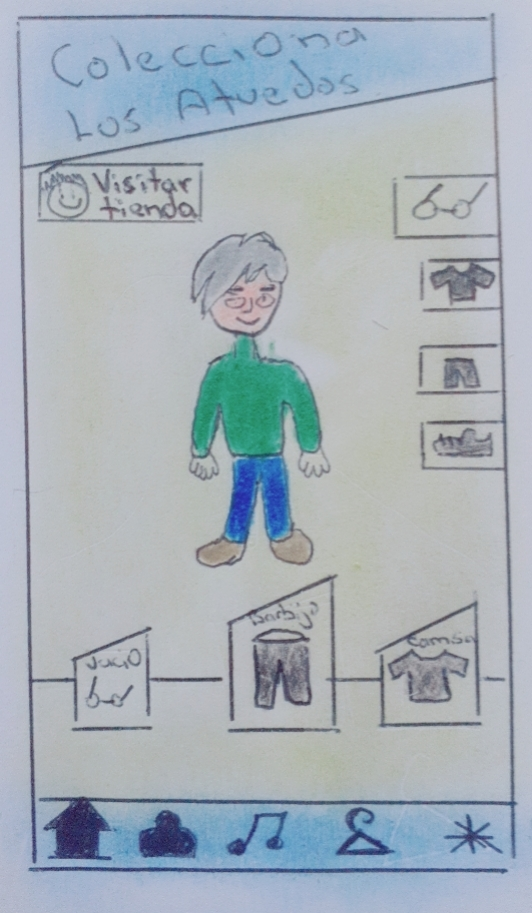 Colecciona
Los Atuedos
Visitar
tienda
Vacio
Barbijo
Camisa